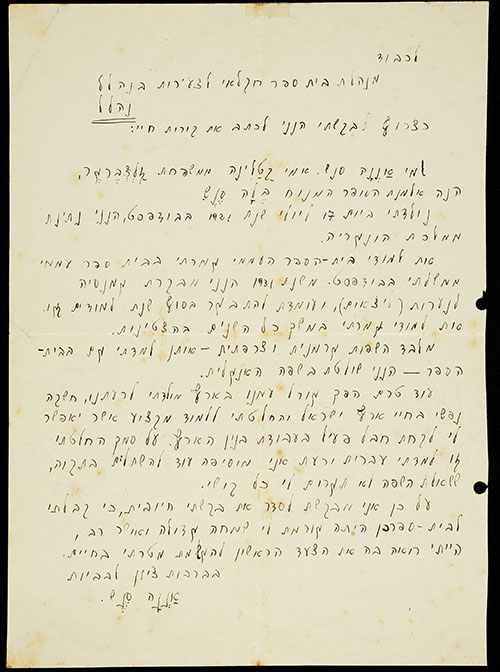 לכבוד
מנהלת בית ספר חקלאי לצעירות בנהלל
נהלל
כצרוף לבקשתי הנני לכתב את קורות חיי:
שמי אַנָּה סנש. אמי קָטָלִינָה ממשפחת זַלְצְבֶּרְגֶר,
הנה אלמנת הסופר המנוח בֶּלָה סֶנֶשׁ
נולדתי ביום 17 ליולי שנת 1921 בבודפסט, הנני נתינת
ממלכת הונגריה.
את למודי בית-הספר העממי גמרתי בבית ספר עממי
ממשלתי בבודפסט. משנת 1931 הנני מבקרת גמנסיה
לנערות (ליצאום), ועומדת להתבגר בסוף שנת למודים זו.
את למודי גמרתי במשך כל השנים בהצטינות.
מלבד השפות גרמנית וצרפתית – אותן למדתי גם בבית-
הספר – הנני שולטת בשפה האנגלית.
עוד טרם הפך גורל עמנו בארץ מולדתי לרעתנו, חשקה
נפשי בחיי ארץ ישראל והחלטתי ללמוד מקצוע אשר יאפשר
לי לקחת חבל פעיל בעבודת בנין הארץ. על סמך החלטתי
זו למדתי עברית וכעת אני מוסיפה עוד להשתלם בתקוה,
ששאלת השפה לא תגרום לי כל קושי.
על כן אני מבקשת לסדר את בקשתי חיובית, כי קבלתי
לבית-ספרכן היתה גורמת לי שמחה גדולה ואושר רב,
הייתי רואה בה את הצעד הראשון להגשמת מטרתי בחיים.
בברכות ציון לבביות
אַנָּה סֶנֶשׁ.